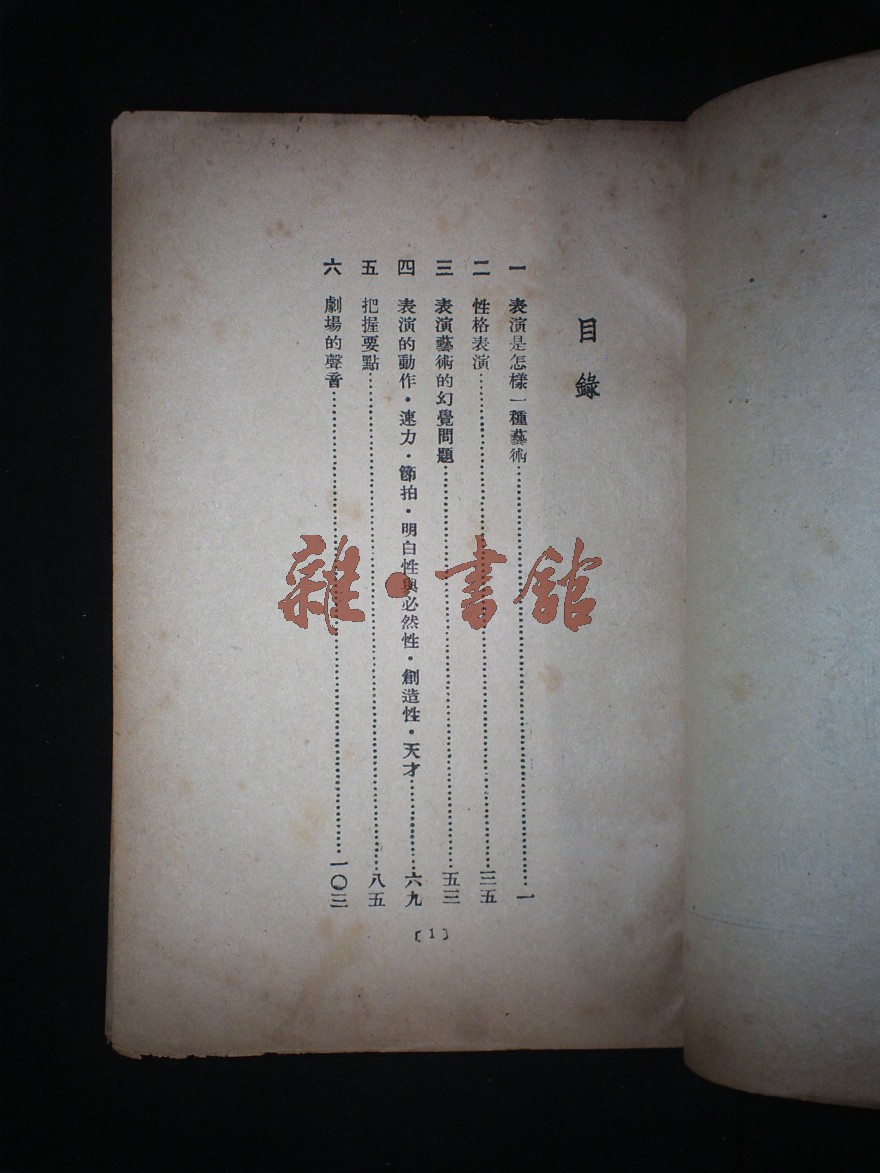 目錄
一 表演是怎樣一種藝術……一
二 性格表演……三五
三 表演藝術的幻覺問題……五三
四 表演的動作・速力・節拍・明白性與必然性・創造性・天才……六九
五 把握要點……八五
六 劇場的聲音……一〇三
〔1〕
雜・書館